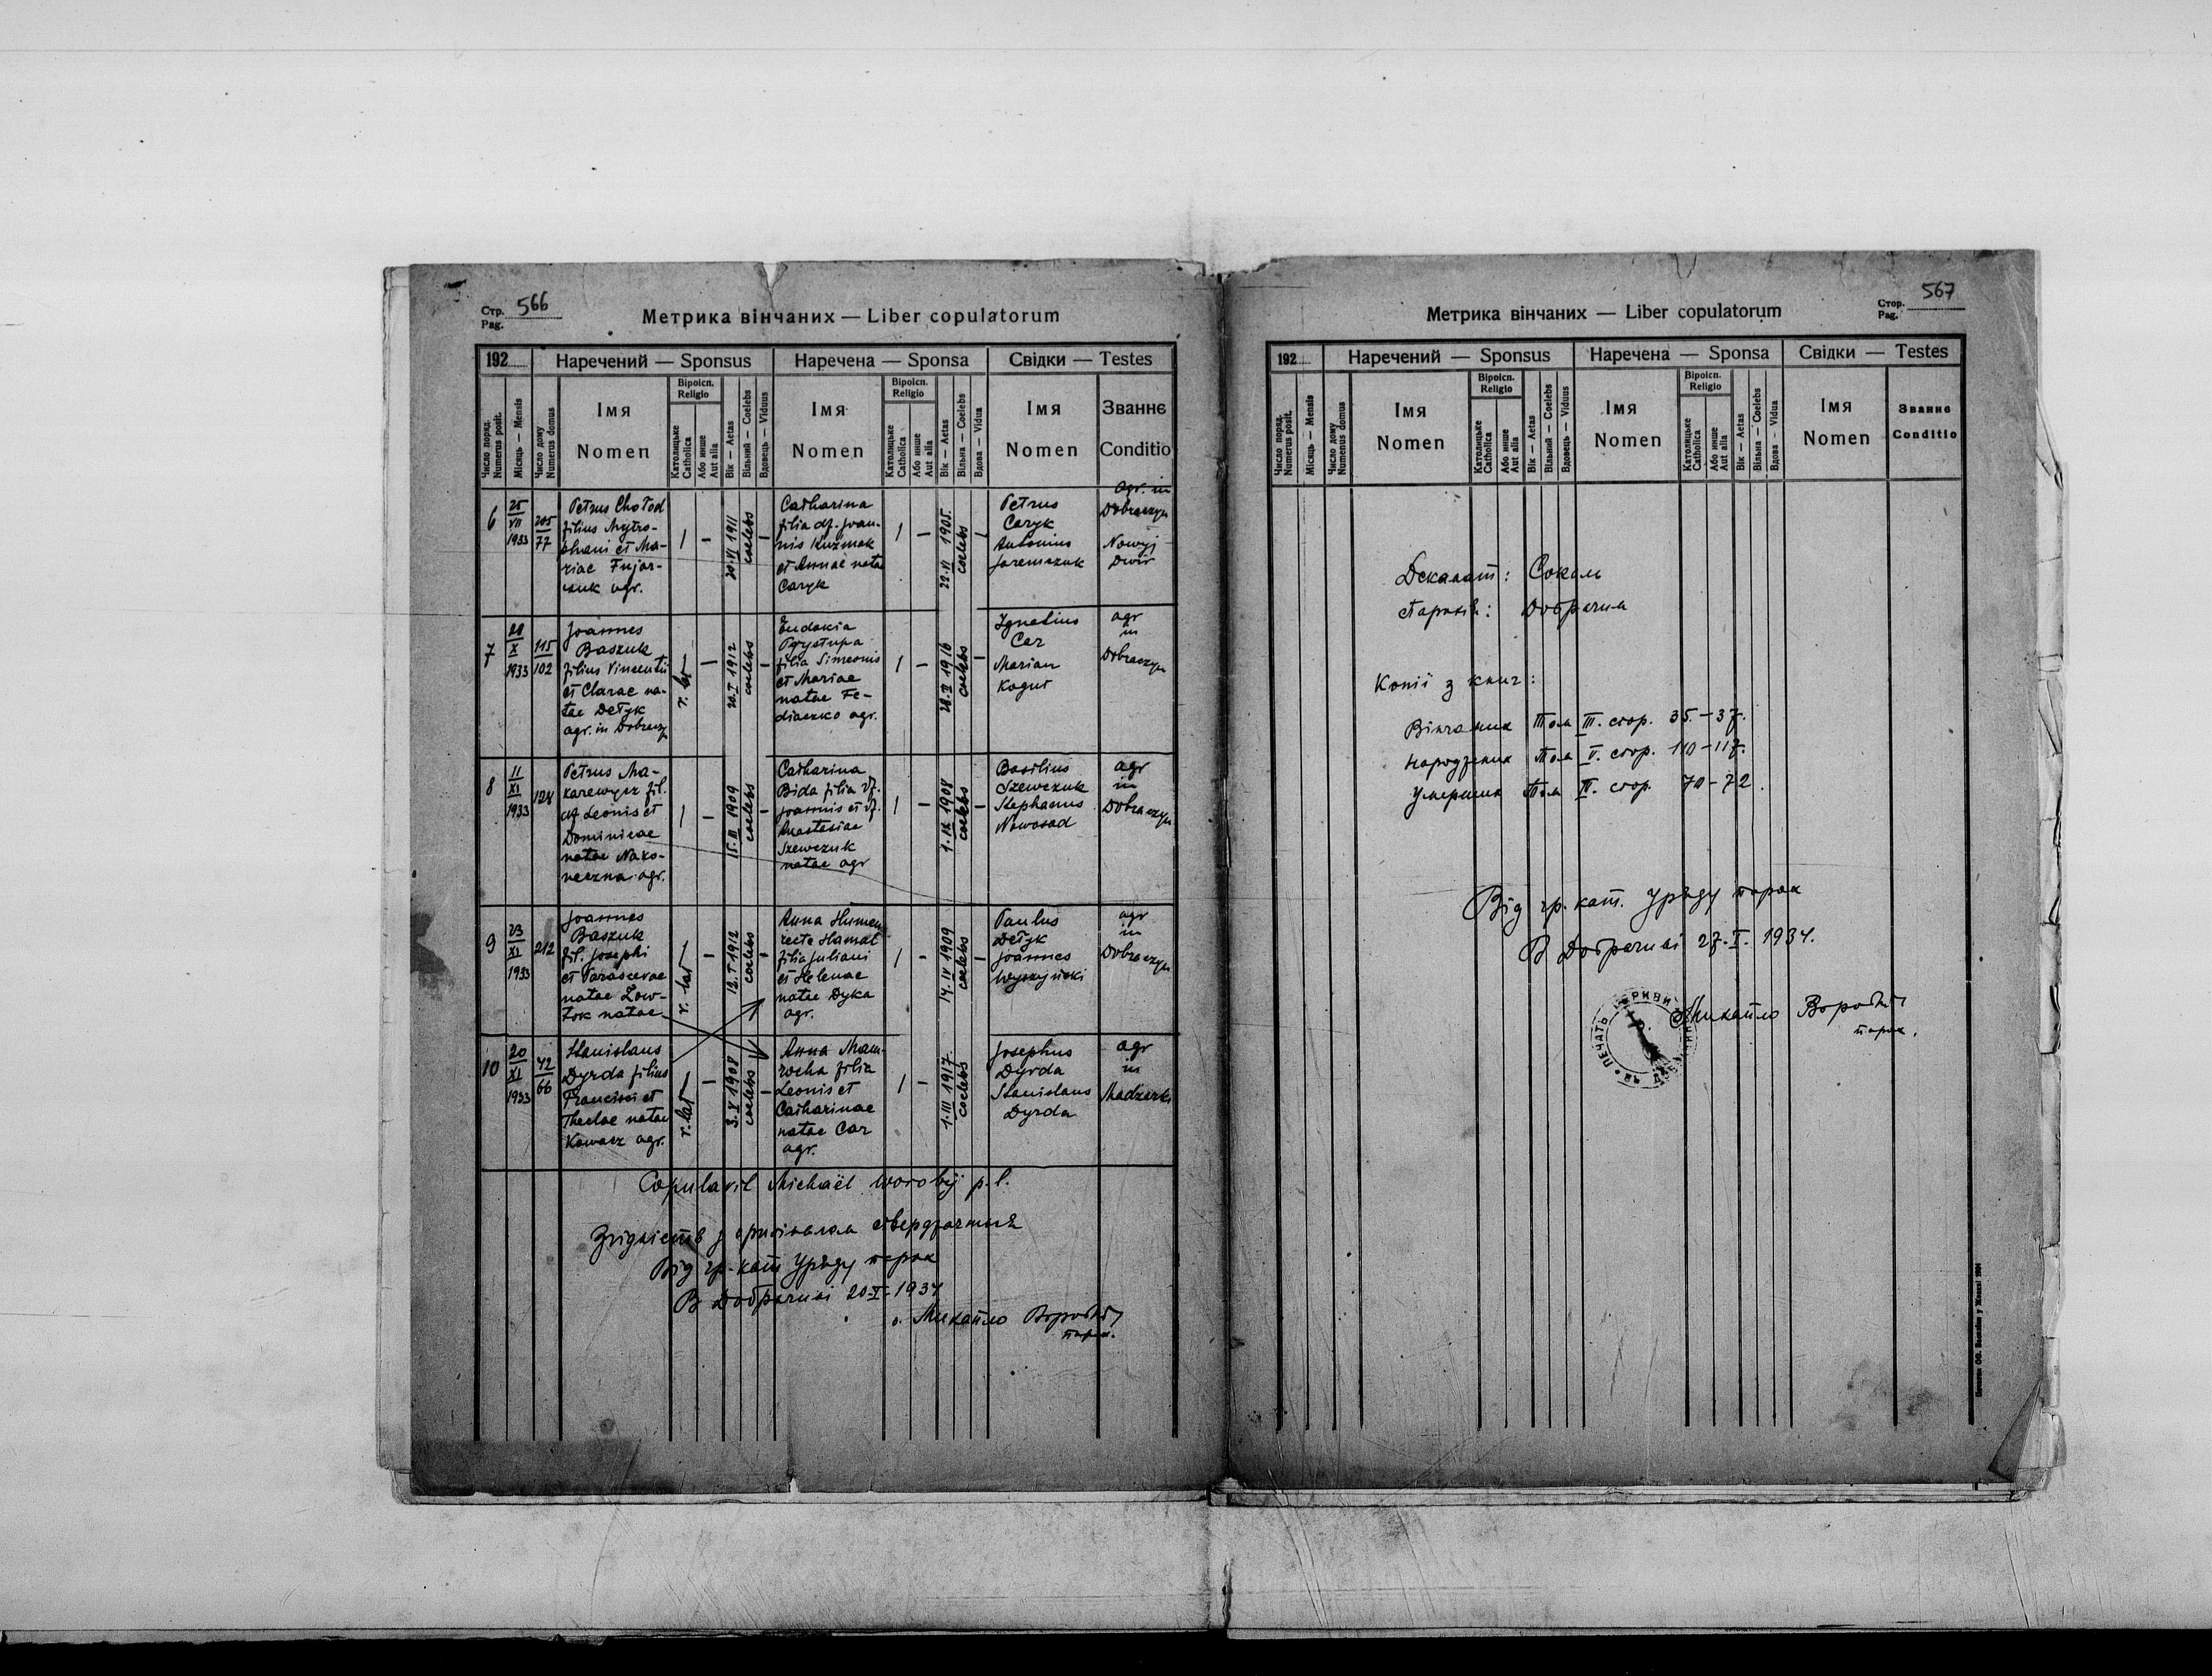 Стр. 566
Pag.
Метрика вінчаних — Liber copulatorum
192
Наречений — Sponsus
Наречена — Sponsa
Свідки — Testes
Число поряд. Numerus posit.
Місяць — Mensis
Число дому Numerus domus
Імя
Nomen
Віроісп.
Religio
Католицьке Catholica
Або инше Aut alia
Вік — Aetas
Вільний — Coelebs
Вдовець — Viduus
Імя
Nomen
Віроісп.
Religio
Католицьке Catholica
Або инше Aut alia
Вік — Aetas
Вільна — Coelebs
Вдова — Vidua
Імя
Nomen
Званнє
Conditio
6
25
VII
1933
205
77
Petrus Chołod
filius Mytro-
phani et Ma-
riae Fujar-
czuk agr.
20.VI 1911
coelebs
Catharina
filia df. Joan-
nis Kuzmak
et Annae natae
Caryk
22.VI 1905.
coelebs
Petrus
Caryk
Antonius
Jaremczuk
agr. in
Dobraczyn
Nowyj
Dwir
7
28
X
1933
115
102
Joannes
Baszuk
filius Vincentii
et Clarae na-
tae Detyk
agr. in Dobracz.
r. lat
20.I 1912
coelebs
Eudokia
Prystupa
filia Simeonis
et Mariae
natae Fe-
diaczko agr.
1916
coelebs
Ignatius
Car
Marian
Kogut
agr
in
Dobraczyn
8
11
XI
1933
128
Petrus Ma-
karewycz fil.
df Leonis et
Dominicae
natae Nako-
neczna agr.
15.III 1909
coelebs
Catharina
Bida filia df.
Joannis et df.
Anastasiae
Szewczuk
natae agr
1.IX 1908
coelebs
Basilius
Szewczuk
Stephanus
Nowosad
agr
in
Dobraczyn
9
23
XI
1933
212
Joannes
Baszuk
fil. Josephi
et Parascevae
natae Zow-
tok natae
r. lat
12.I 1912
coelebs
Anna Humen
recte Hamal
filia Juliani
et Helenae
natae Dyka
agr.
14.IV 1909
coelebs
Paulus
Detyk
Joannes
Wyszyński
agr
in
Dobraczyn
10
20
XI
1933
42
66
Stanislaus
Dyrda filius
Francisci et
Theclae natae
Kowacz agr.
r. lat
3.V 1908
coelebs
Anna Mam-
rocha filia
Leonis et
Catharinae
natae Car
agr.
1.III 1917
coelebs
Josephus
Dyrda
Stanislaus
Dyrda
agr
in
Madziarki
Copulavit Michaël Worobij p.l.
Згідність з оригіналом стверджається
Від гр. кат Уряду парох
В Добрачині 20.I.1934
о. Михайло Воробій
парох.
567
Стор.
Pag.
Метрика вінчаних — Liber copulatorum
192
Наречений — Sponsus
Наречена — Sponsa
Свідки — Testes
Число поряд. Numerus posit.
Місяць — Mensis
Число дому Numerus domus
Імя
Nomen
Віроісп.
Religio
Католицьке Catholica
Або инше Aut alia
Вік — Aetas
Вільний — Coelebs
Вдовець — Viduus
Імя
Nomen
Віроісп.
Religio
Католицьке Catholica
Або инше Aut alia
Вік — Aetas
Вільна — Coelebs
Вдова — Vidua
Імя
Nomen
Званнє
Conditio
Деканат: Сокаль
Парохія: Добрачин
Копії з книг:
Вінчаних Том III. стор. 35.-37.
Народжених Том V. стор. 110-117.
Умерших Том IV. стор. 70-72.
Від гр. кат. Уряду парох
В Добрачині 27.I. 1934.
Михайло Воробій
парох.